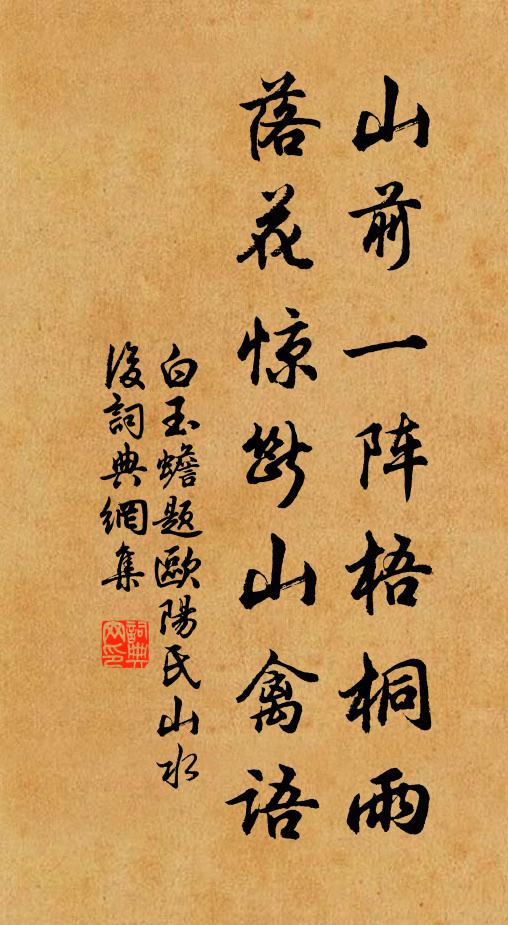 山前一阵梧桐雨
落花惊断山禽语
白玉蟾题歐陽氏山水
後詞典網集
詞典網印